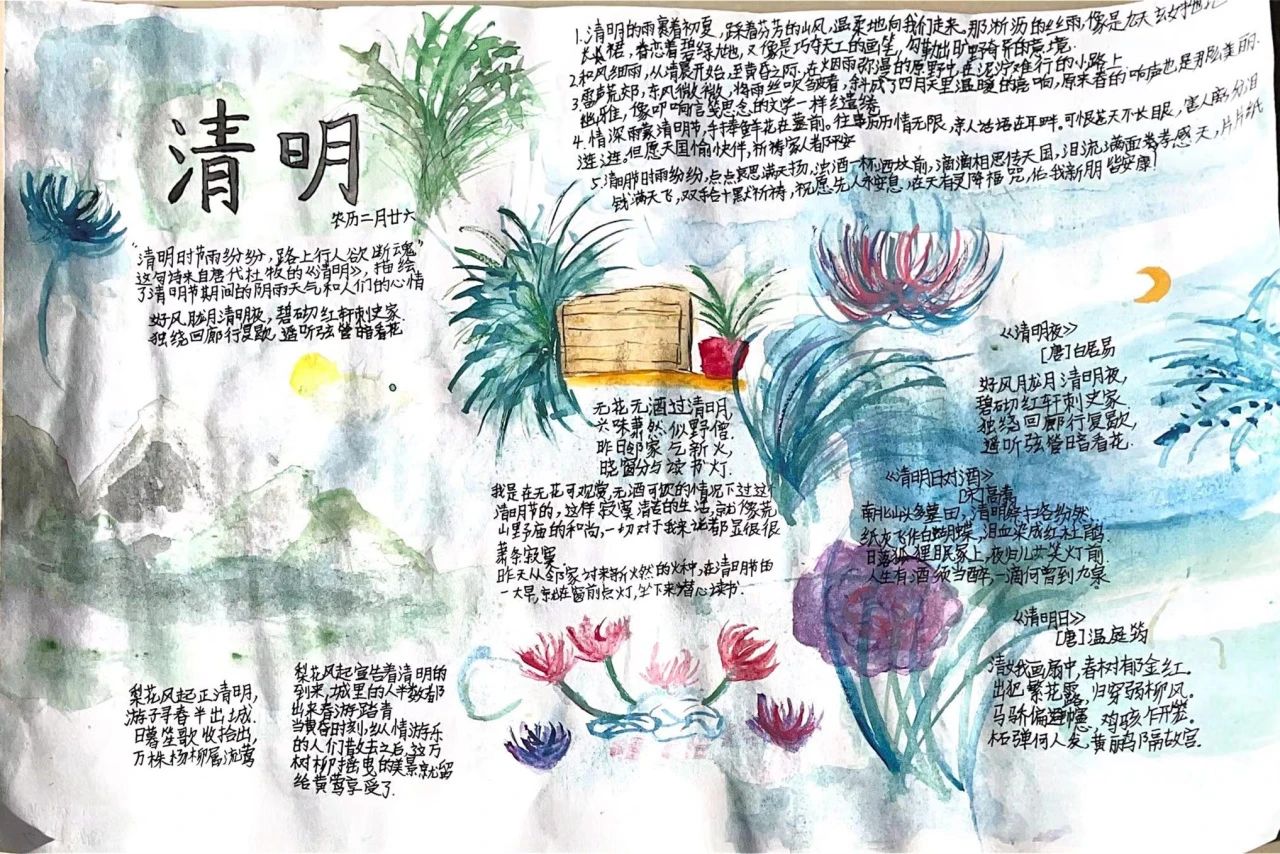 清明
农历二月廿六
"清明时节雨纷纷，路上行人欲断魂"
这句诗来自唐代杜牧的《清明》，描绘
了清明节期间的阴雨天气和人们的心情
好风胧月清明夜，碧砌红轩刺史家.
独绕回廊行复歇，遥听弦管暗看花
1.清明的雨裹着初夏，踩着芬芳的山风，温柔地向我们走来.那淅沥的丝雨，像是九天玄女拖地
长裙，眷恋着碧绿地，又像是巧夺天工的画笔，勾勒出旷野奇异的意境.
2.和风细雨，从清晨开始，至黄昏之际，在烟雨弥漫的原野中，在泥泞难行的小路上.
3.雷声荒郊，东风微微，将雨丝吹皱着，斜成了四月天里温暖的意响，原来春的响声也是那般美丽.
幽雅，像叩响言笺思念的文学一样纟遣绻
4.情深雨哀清明节，手捧鲜花在墓前.往事历历情无限，亲人话语在耳畔.可恨苍天不长眼，害人
涟涟.但愿天国愉快伴，祈祷家人都平安
5.清明时雨纷纷，点点哀思满天扬，浊酒一杯洒坟前，滴滴相思传天国，泪流满面孝感天，片片纸
钱满天飞，双手合十默祈祷，祝愿先人永安息，在天有灵降福咒，佑我新朋皆安康！
无花无酒过清明，
兴味萧然似野僧.
昨日邻家乞新火，
晓窗分与读书灯.
我是在无花可观赏，无酒可饮的情况下过这个
清明节的，这样寂寞清苦的生活，就像荒
山野庙的和尚，一切对于我来说都显很很
萧条寂寞.
昨天从邻家讨来新火燃的火种，在清明节的
一大早，就在窗前点灯，坐下来潜心读书.
《清明夜》
[唐]白居易
好风胧月清明夜，
碧砌红轩刺史家.
独绕回廊行复歇，
遥听弦管暗看花.
《清明日对酒》
[宋]高翥
南北山头多墓田，清明祭扫各纷然.
纸灰飞作白蝴蝶，泪血染成红杜鹃.
日落狐狸眠冢上，夜归儿女笑灯前.
人生有酒须当醉，一滴何曾到九泉
《清明日》
[唐]温庭筠
清娥画扇中，春树郁金红.
出犯繁花露，归穿弱柳风.
马骄偏避幰，鸡骇乍开笼.
柘弹何人发，黄鹂隔故宫.
梨花风起正清明，
游子寻春半出城.
日暮笙歌收拾出，
万株杨柳属流莺
梨花风起宣告着清明的
到来，城里的人半数都
出来春游踏青
当黄昏时刻，纵情游乐
的人们散去之后，这万
树柳摇曳的美景就留
给黄莺享受了.